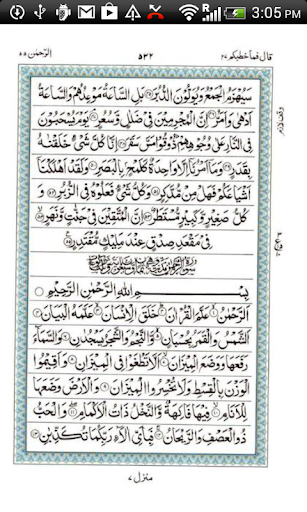 3:05 PM
الرّحمٰن ٥٥
٥٣٢
قال فما خطبكم ٢٧
سَيُهْزَمُ الْجَمْعُ وَيُوَلُّوْنَ الدُّبُرَ بَلِ السَّاعَةُ مَوْعِدُهُمْ وَالسَّاعَةُ
اَدْهٰى وَاَمَرُّ اِنَّ الْمُجْرِمِيْنَ فِيْ ضَلٰلٍ وَّسُعُرٍ يَوْمَ يُسْحَبُوْنَ
فِي النَّارِ عَلٰى وُجُوْهِهِمْ ذُوْقُوْا مَسَّ سَقَرَ اِنَّا كُلَّ شَيْءٍ خَلَقْنٰهُ
بِقَدَرٍ وَمَآ اَمْرُنَآ اِلَّا وَاحِدَةٌ كَلَمْحٍ بِالْبَصَرِ وَلَقَدْ اَهْلَكْنَآ
اَشْيَاعَكُمْ فَهَلْ مِنْ مُّدَّكِرٍ وَكُلُّ شَيْءٍ فَعَلُوْهُ فِي الزُّبُرِ وَ
كُلُّ صَغِيْرٍ وَّكَبِيْرٍ مُّسْتَطَرٌ اِنَّ الْمُتَّقِيْنَ فِيْ جَنّٰتٍ وَّنَهَرٍ
فِيْ مَقْعَدِ صِدْقٍ عِنْدَ مَلِيْكٍ مُّقْتَدِرٍ
بِسْمِ اللهِ الرَّحْمٰنِ الرَّحِيْمِ
اَلرَّحْمٰنُ عَلَّمَ الْقُرْاٰنَ خَلَقَ الْاِنْسَانَ عَلَّمَهُ الْبَيَانَ
اَلشَّمْسُ وَالْقَمَرُ بِحُسْبَانٍ وَّالنَّجْمُ وَالشَّجَرُ يَسْجُدٰنِ وَالسَّمَآءَ
رَفَعَهَا وَوَضَعَ الْمِيْزَانَ اَلَّا تَطْغَوْا فِي الْمِيْزَانِ وَاَقِيْمُوا
الْوَزْنَ بِالْقِسْطِ وَلَا تُخْسِرُوا الْمِيْزَانَ وَالْاَرْضَ وَضَعَهَا
لِلْاَنَامِ فِيْهَا فَاكِهَةٌ وَّالنَّخْلُ ذَاتُ الْاَكْمَامِ وَالْحَبُّ
ذُو الْعَصْفِ وَالرَّيْحَانُ فَبِاَيِّ اٰلَآءِ رَبِّكُمَا تُكَذِّبٰنِ
منزل ٧